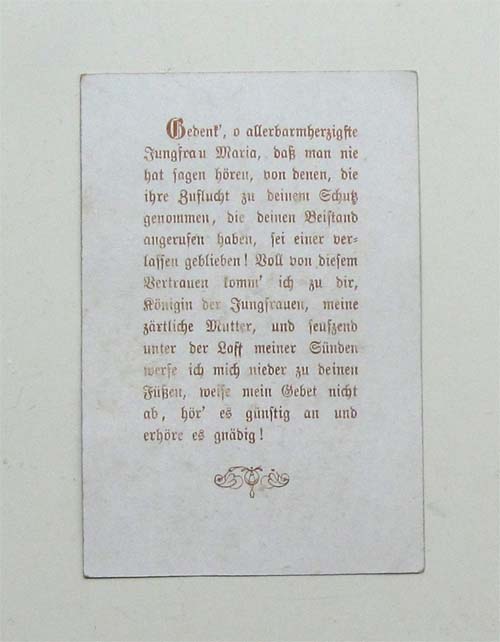 Gedenk', o allerbarmherzigste
Jungfrau Maria, daß man nie
hat sagen hören, von denen, die
ihre Zuflucht zu deinem Schutz
genommen, die deinen Beistand
angerufen haben, sei einer ver-
lassen geblieben! Voll von diesem
Vertrauen komm' ich zu dir,
Königin der Jungfrauen, meine
zärtliche Mutter, und seufzend
unter der Last meiner Sünden
werfe ich mich nieder zu deinen
Füßen, weise mein Gebet nicht
ab, hör' es günstig an und
erhöre es gnädig!